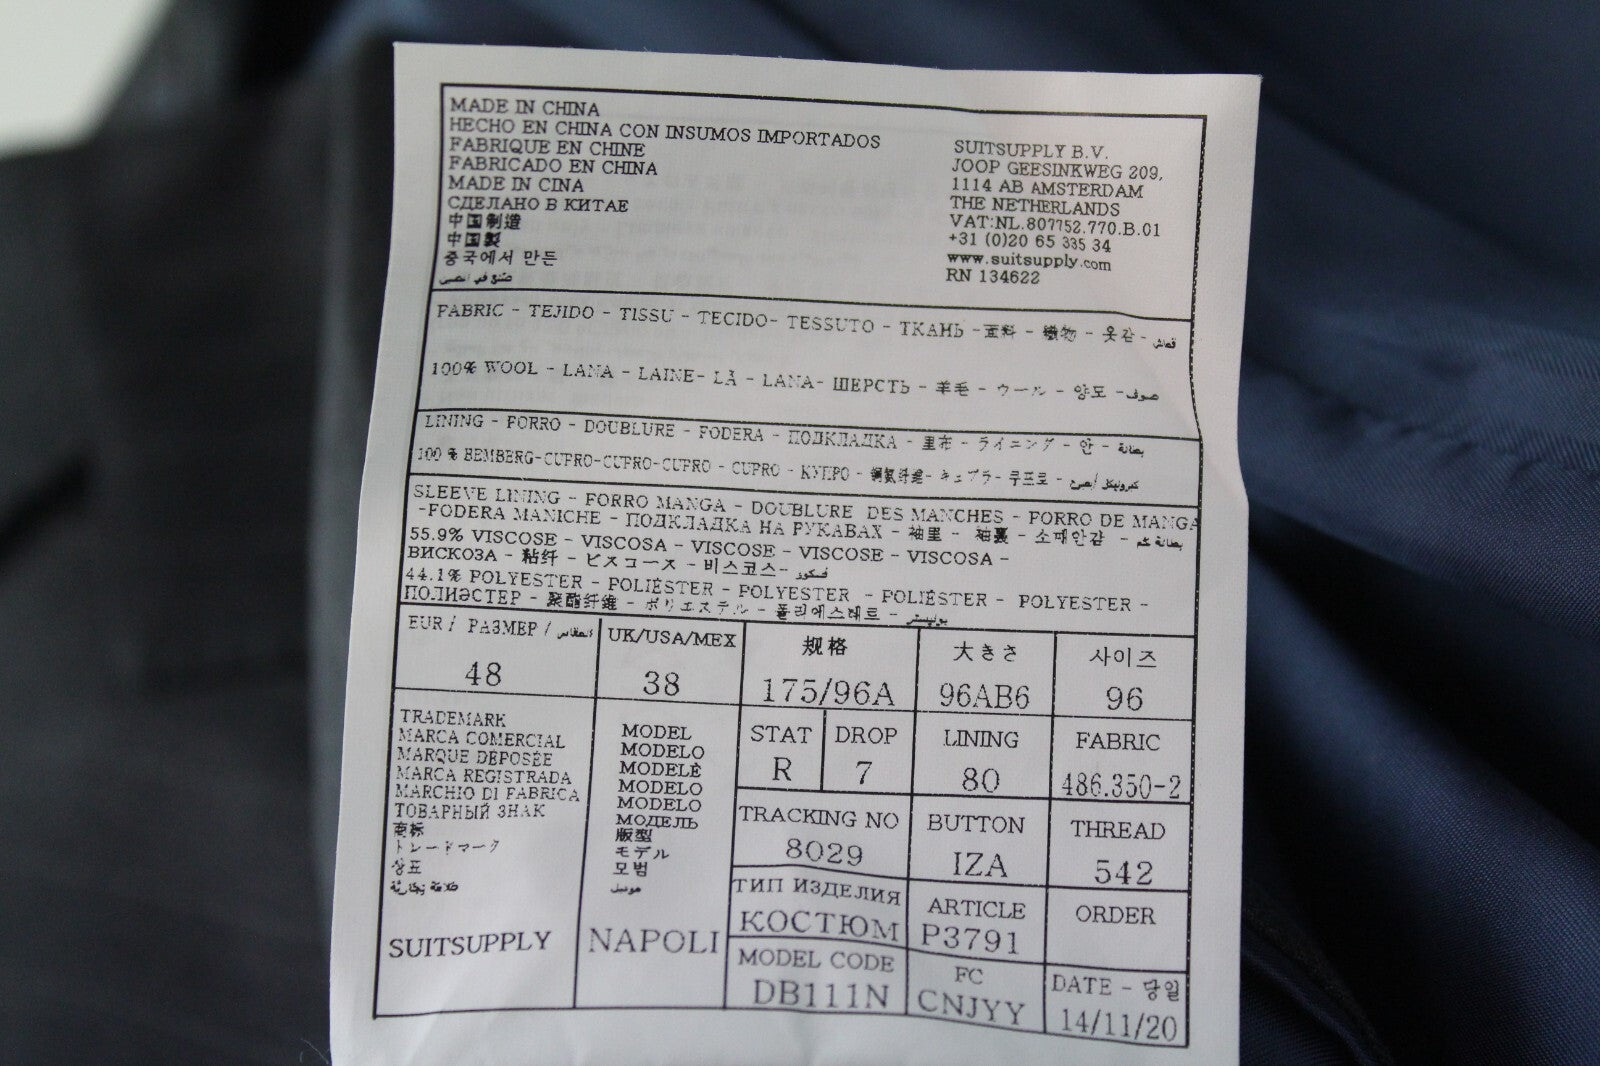 MADE IN CHINA
HECHO EN CHINA CON INSUMOS IMPORTADOS
FABRIQUE EN CHINE
FABRICADO EN CHINA
MADE IN CINA
СДЕЛАНО В КИТАЕ
中国制造
中国製
중국에서 만든
صنع في الصين
SUITSUPPLY B.V.
JOOP GEESINKWEG 209,
1114 AB AMSTERDAM
THE NETHERLANDS
VAT:NL.807752.770.B.01
+31 (0)20 65 335 34
www.suitsupply.com
RN 134622
FABRIC - TEJIDO - TISSU - TECIDO- TESSUTO - ТКАНЬ -面料 - 織物 - 옷감 - قماش
100% WOOL - LANA - LAINE- LÃ - LANA- ШЕРСТЬ - 羊毛 - ウール - 양모 -صوف
LINING - FORRO - DOUBLURE - FODERA - ПОДКЛАДКА - 里布 - ライニング - 안 - بطانة
100 % BEMBERG-CUPRO-CUPRO-CUPRO - CUPRO - КУПРО - 铜氨纤维- キュプラ- 쿠프로 -
SLEEVE LINING - FORRO MANGA - DOUBLURE DES MANCHES - FORRO DE MANGA
-FODERA MANICHE - ПОДКЛАДКА НА РУКАВАХ - 袖里 - 袖裏 - 소매안감 - بطانة كم
55.9% VISCOSE - VISCOSA - VISCOSE - VISCOSE - VISCOSA -
ВИСКОЗА - 粘纤 - ビスコース - 비스코스- فسكوز
44.1% POLYESTER - POLIÉSTER - POLYESTER - POLIÉSTER - POLYESTER -
ПОЛИЭСТЕР - 聚酯纤维 - ポリエステル - 폴리에스테르 - بوليستر
EUR / РАЗМЕР / المقاس
48
UK/USA/MEX
38
规格
175/96A
大きさ
96AB6
사이즈
96
TRADEMARK
MARCA COMERCIAL
MARQUE DÉPOSÉE
MARCA REGISTRADA
MARCHIO DI FABRICA
ТОВАРНЫЙ ЗНАК
商标
トレードマーク
상표
علامة تجارية
SUITSUPPLY
MODEL
MODELO
MODELÈ
MODELO
MODELO
МОДЕЛЬ
版型
モデル
모범
موديل
NAPOLI
STAT
R
DROP
7
LINING
80
FABRIC
486.350-2
TRACKING NO
8029
BUTTON
IZA
THREAD
542
ТИП ИЗДЕЛИЯ
КОСТЮМ
ARTICLE
P3791
ORDER
MODEL CODE
DB111N
FC
CNJYY
DATE - 당일
14/11/20